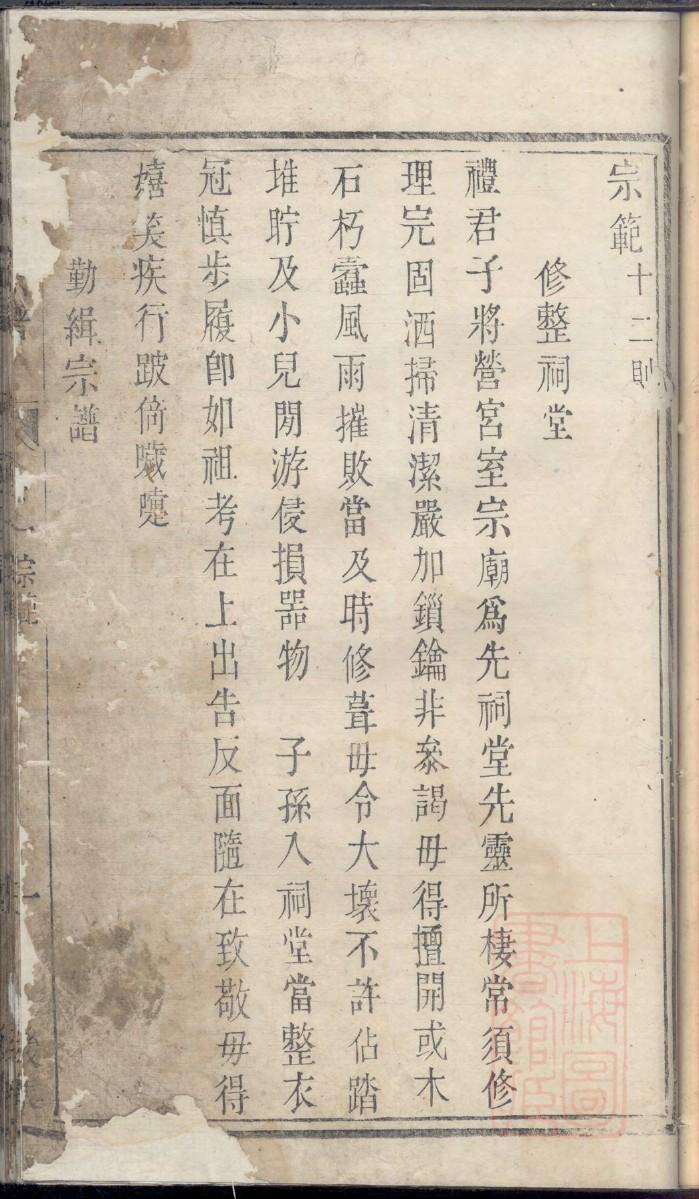 宗範十二則
修整祠堂
禮君子將營宮室宗廟爲先祠堂先靈所棲常須修
理完固洒掃清潔嚴加鎖鑰非叅謁毋得擅開或木
石朽蠧風雨摧敗當及時修葺毋令大壞不許佔踏
堆貯及小兒閒游侵損器物 子孫入祠堂當整衣
冠慎步履卽如祖考在上出告反面隨在致敬毋得
嬉笑疾行跛倚噦嚏
勤緝宗譜
宗範
上海圖
書館藏